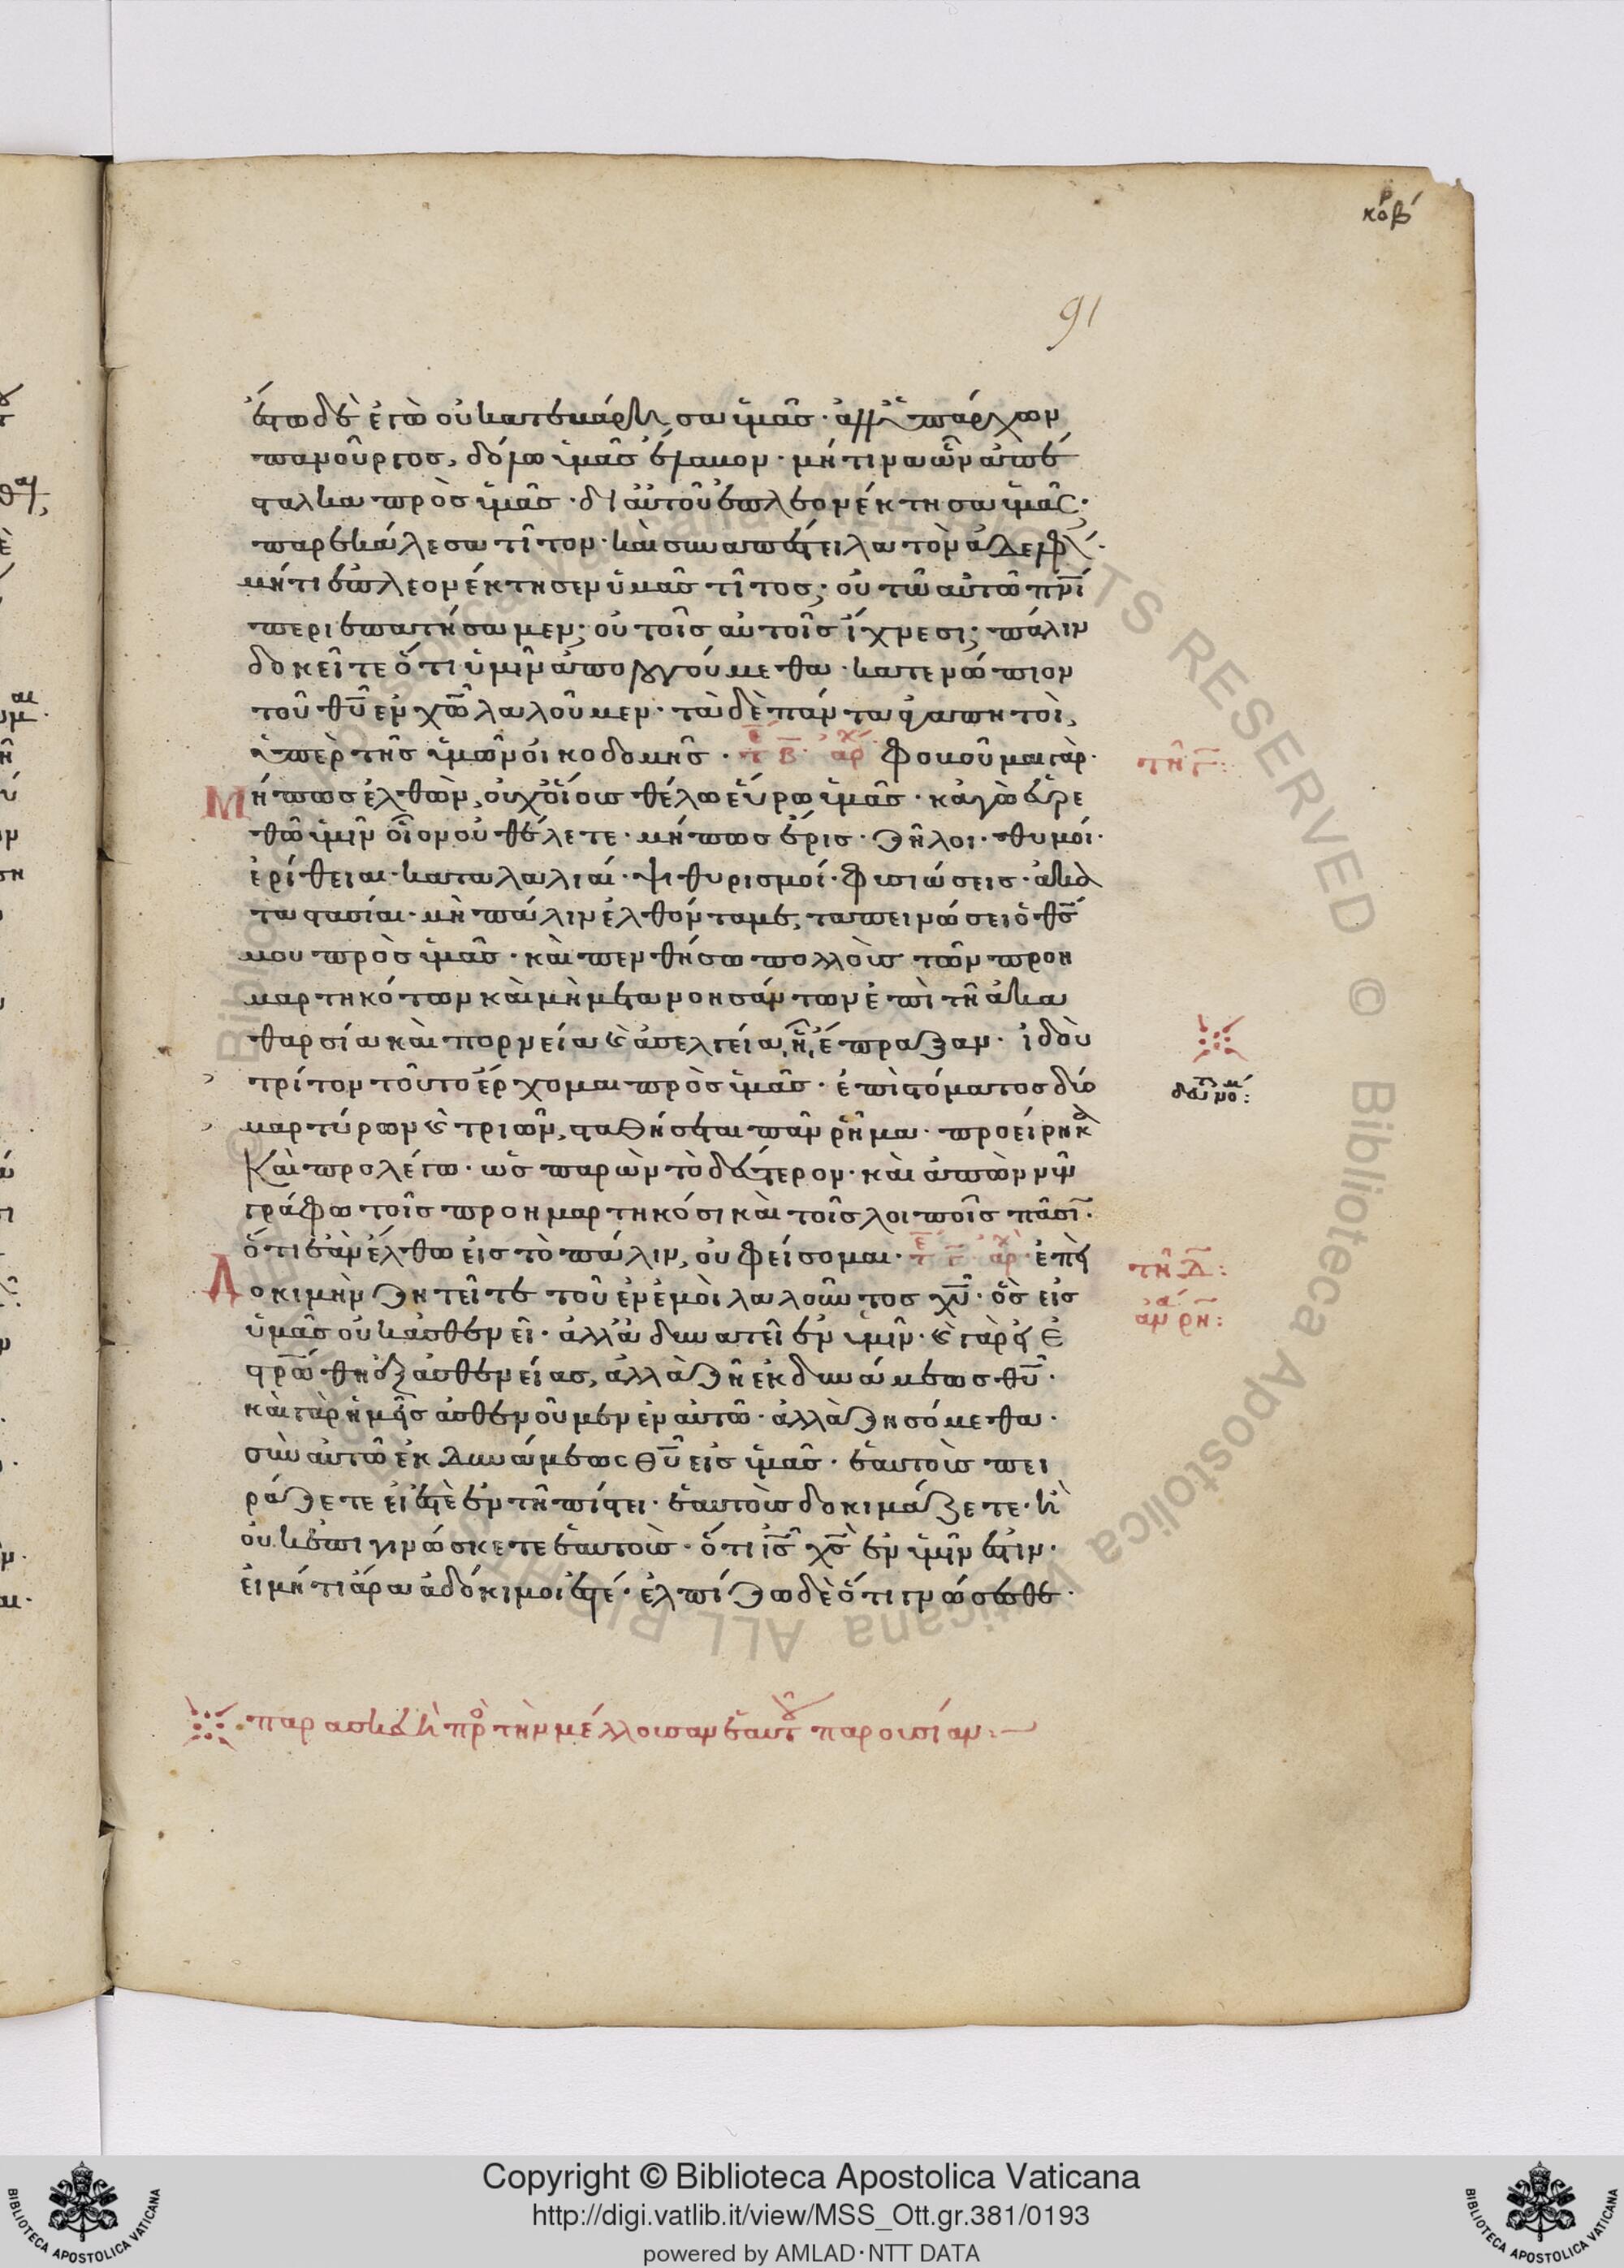 κορ β´
91
ἔστω δὲ ἐγὼ οὐ κατενάρκησα ὑμᾶς · ἀλλ' ὑπάρχων
πανοῦργος, δόλω ὑμᾶς ἔλαβον · μή τινα ὧν ἀπέ
σταλκα πρὸς ὑμᾶς · δι αὐτοῦ ἐπλεονέκτησα ὑμᾶς ·
παρεκάλεσα τίτον · καὶ συναπέστειλα τὸν ἀδελφ ·
μήτι ἐπλεονέκτησεν ὑμᾶς τίτος; οὐ τῶ αὐτῶ πνι
περιεπατήσαμεν; οὐ τοῖς αὐτοῖς ἴχνεσι; πάλιν
δοκεῖτε ὅτι ὑμῖν ἀπολογούμεθα · κατενώπιον
τοῦ θυ ἐν χω λαλοῦμεν · τὰ δὲ πάντα ἀγαπητοὶ,
ὑπὲρ τῆς ὑμῶν οἰκοδομῆς · τε β · ἀρχ φοβοῦμαι γὰρ ·
τῆ γ :
Μήπως ἐλθὼν, οὐχ οἵους θέλω εὕρω ὑμᾶς · κἀγὼ εὑρε
θῶ ὑμῖν οἷον οὐ θέλετε · μήπως ἔρις · ζῆλοι · θυμοί ·
ἐρίθειαι · καταλαλιαί · ψιθυρισμοί · φυσιώσεις · ἀκα
ταστασίαι · μὴ πάλιν ἐλθόντα με, ταπεινώσει ὁ θς
μου πρὸς ὑμᾶς · καὶ πενθήσω πολλοὺς τῶν προη
μαρτηκότων καὶ μὴ μετανοησάντων ἐπὶ τῆ ἀκα
θαρσία καὶ πορνεία καὶ ἀσελγεία, ἧ, ἔπραξαν · ἰδοὺ
τρίτον τοῦτο ἔρχομαι πρὸς ὑμᾶς · ἐπὶ στόματος δύο
μαρτύρων καὶ τριῶν, σταθήσεται πᾶν ῥῆμα · προείρηκα
Καὶ προλέγω · ὡς παρὼν τὸ δεύτερον · καὶ ἀπὼν νῦν
γράφω τοῖς προημαρτηκόσι καὶ τοῖς λοιποῖς πᾶσι ·
ὅτι ἐὰν ἔλθω εἰς τὸ πάλιν, οὐ φείσομαι · τε γ ἀρχ · ἐπεὶ
τῆ δ :
Δοκιμὴν ζητεῖτε τοῦ ἐν ἐμοὶ λαλοῦντος χυ · ὃς εἰς
ὑμᾶς οὐκ ἀσθενεῖ · ἀλλὰ δυνατεῖ ἐν ὑμῖν · καὶ γὰρ εἰ ἐ
στρώθη ἐξ ἀσθενείας, ἀλλὰ ζῆ ἐκ δυνάμεως θυ ·
καὶ γὰρ ἡμεῖς ἀσθενοῦμεν ἐν αὐτῶ · ἀλλὰ ζησόμεθα ·
σὺν αὐτῶ ἐκ δυνάμεως θυ εἰς ὑμᾶς · ἑαυτοὺς πει
ράζετε εἰ ἐστὲ ἐν τῆ πίστει · ἑαυτοὺς δοκιμάζετε · ἢ
οὐκ ἐπιγινώσκετε ἑαυτοὺς · ὅτι ις χς ἐν ὑμῖν ἐστιν ·
εἰ μή τι ἄρα ἀδόκιμοί ἐστέ · ἐλπίζω δὲ ὅτι γνώσεσθε ·
παρασκευὴ πρὸ τὴν μέλλουσαν ἑαυτοῦ παρουσίαν :